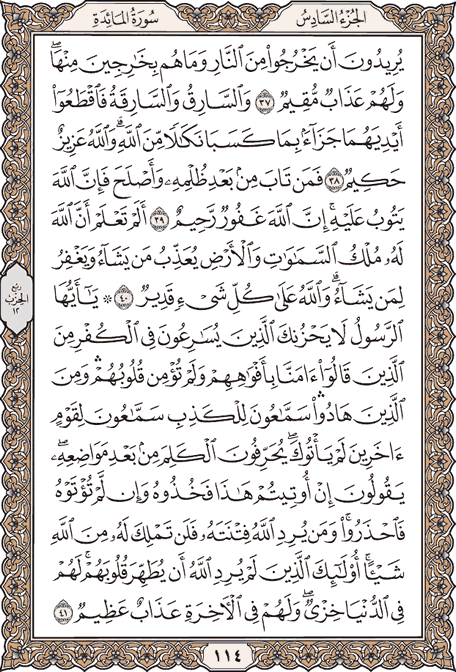 الجزء السادس
سورة المائدة
يُرِيدُونَ أَن يَخْرُجُوا۟ مِنَ ٱلنَّارِ وَمَا هُم بِخَٰرِجِينَ مِنْهَا ۖ
وَلَهُمْ عَذَابٌ مُّقِيمٌ ٣٧ وَٱلسَّارِقُ وَٱلسَّارِقَةُ فَٱقْطَعُوٓا۟
أَيْدِيَهُمَا جَزَآءًۢ بِمَا كَسَبَا نَكَٰلًا مِّنَ ٱللَّهِ ۗ وَٱللَّهُ عَزِيزٌ
حَكِيمٌ ٣٨ فَمَن تَابَ مِنۢ بَعْدِ ظُلْمِهِۦ وَأَصْلَحَ فَإِنَّ ٱللَّهَ
يَتُوبُ عَلَيْهِ ۗ إِنَّ ٱللَّهَ غَفُورٌ رَّحِيمٌ ٣٩ أَلَمْ تَعْلَمْ أَنَّ ٱللَّهَ
لَهُۥ مُلْكُ ٱلسَّمَٰوَٰتِ وَٱلْأَرْضِ يُعَذِّبُ مَن يَشَآءُ وَيَغْفِرُ
لِمَن يَشَآءُ ۗ وَٱللَّهُ عَلَىٰ كُلِّ شَىْءٍ قَدِيرٌ ٤٠ ۞ يَٰٓأَيُّهَا
ٱلرَّسُولُ لَا يَحْزُنكَ ٱلَّذِينَ يُسَٰرِعُونَ فِى ٱلْكُفْرِ مِنَ
ٱلَّذِينَ قَالُوٓا۟ ءَامَنَّا بِأَفْوَٰهِهِمْ وَلَمْ تُؤْمِن قُلُوبُهُمْ ۛ وَمِنَ
ٱلَّذِينَ هَادُوا۟ ۛ سَمَّٰعُونَ لِلْكَذِبِ سَمَّٰعُونَ لِقَوْمٍ
ءَاخَرِينَ لَمْ يَأْتُوكَ ۖ يُحَرِّفُونَ ٱلْكَلِمَ مِنۢ بَعْدِ مَوَاضِعِهِۦ ۖ
يَقُولُونَ إِنْ أُوتِيتُمْ هَٰذَا فَخُذُوهُ وَإِن لَّمْ تُؤْتَوْهُ
فَٱحْذَرُوا۟ ۚ وَمَن يُرِدِ ٱللَّهُ فِتْنَتَهُۥ فَلَن تَمْلِكَ لَهُۥ مِنَ ٱللَّهِ
شَيْـًٔا ۚ أُو۟لَٰٓئِكَ ٱلَّذِينَ لَمْ يُرِدِ ٱللَّهُ أَن يُطَهِّرَ قُلُوبَهُمْ ۚ لَهُمْ
فِى ٱلدُّنْيَا خِزْىٌ ۖ وَلَهُمْ فِى ٱلْءَاخِرَةِ عَذَابٌ عَظِيمٌ ٤١
ربع
الحزب
١٢
١١٤